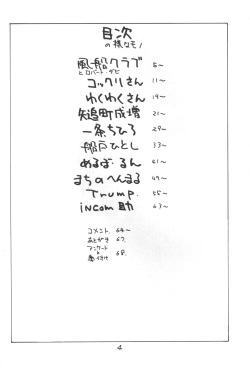 目次
の様なモノ
風船クラブ 5〜
とロバート・デビ
コックリさん 11〜
わくわくさん 19〜
矢追町成増 21〜
一条ちひろ 29〜
船戸ひとし 33〜
めるば・るん 41〜
まちのへんまる 49〜
Trump. 55〜
iNCom助 63〜
コメント 64〜
あとがき 67.
アンケート 68.
&
奥付け
4